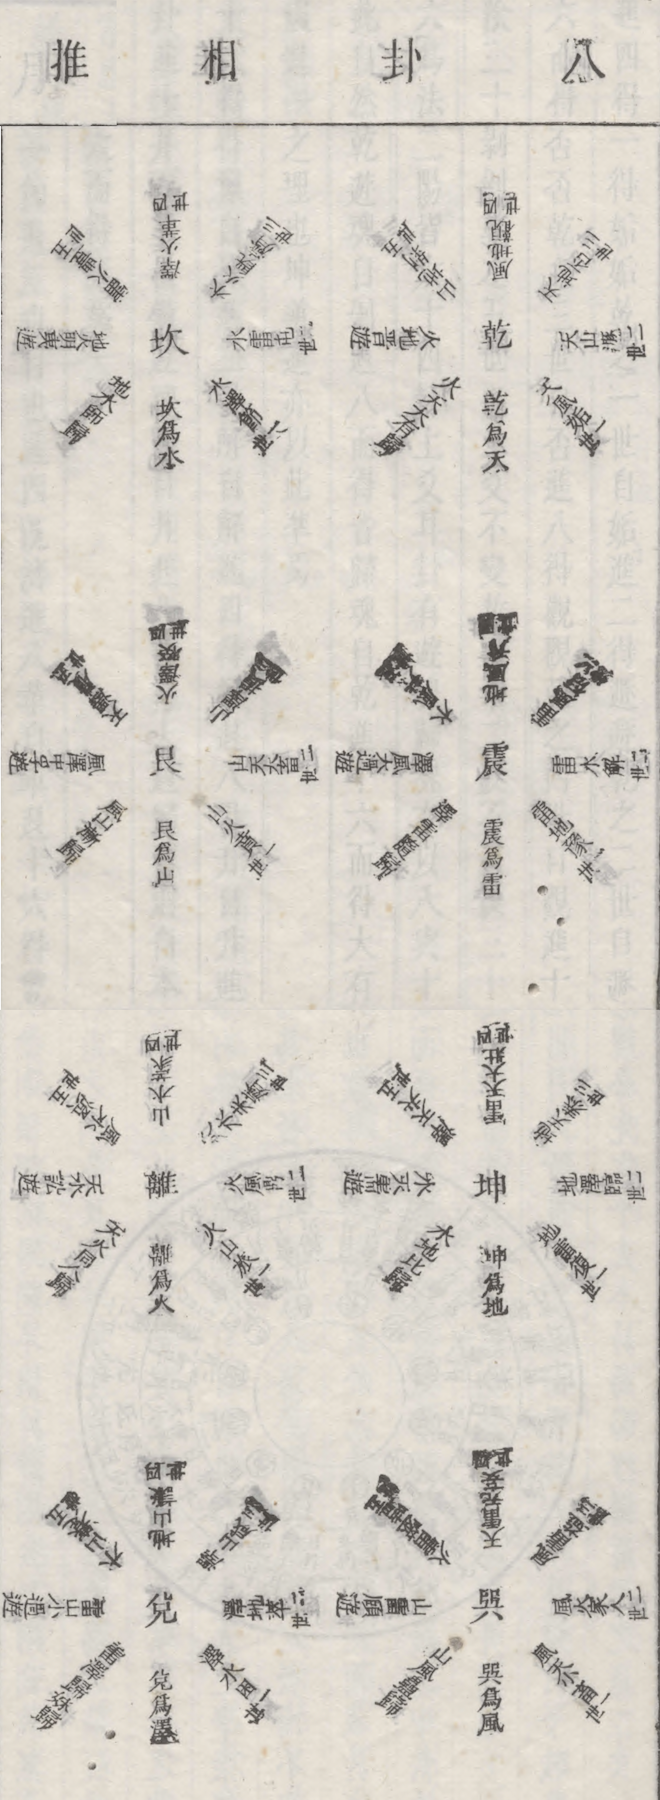 八卦相推
乾
乾爲天
天風姤一世
天山遯二世
天地否三世
風地觀四世
山地剝五世
火地晉遊
火天大有歸
坎
坎爲水
水澤節一世
水雷屯二世
水火既濟三世
澤火革四世
雷火豐五世
地火明夷遊
地水師歸
震
震爲雷
雷地豫一世
雷水解二世
雷風恒三世
地風升四世
水風井五世
澤風大過遊
澤雷隨歸
艮
艮爲山
山火賁一世
山天大畜二世
山澤損三世
火澤睽四世
天澤履五世
風澤中孚遊
風山漸歸
坤
坤爲地
地雷復一世
地澤臨二世
地天泰三世
雷天大壯四世
澤天夬五世
水天需遊
水地比歸
離
離爲火
火山旅一世
火風鼎二世
火水未濟三世
山水蒙四世
風水渙五世
天水訟遊
天火同人歸
巽
巽爲風
風天小畜一世
風火家人二世
風雷益三世
天雷无妄四世
火雷噬嗑五世
山雷頤遊
山風蠱歸
兌
兌爲澤
澤水困一世
澤地萃二世
澤山咸三世
水山蹇四世
地山謙五世
雷山小過遊
雷澤歸妹歸